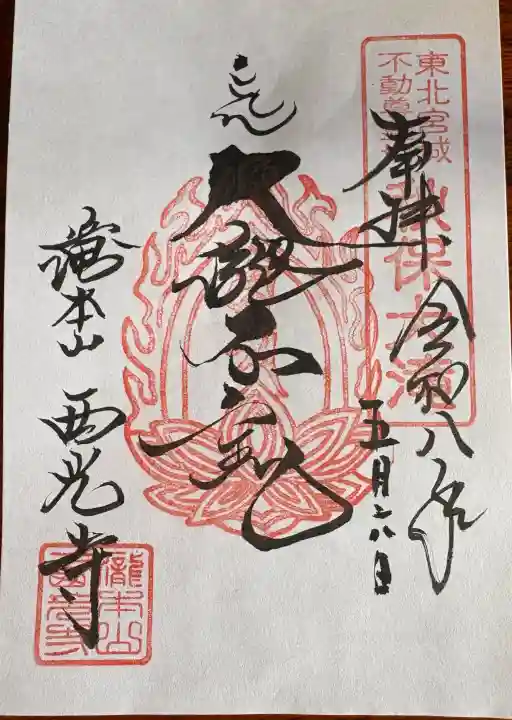 東北宮城
不動尊
秋保大滝
奉拝
令和八年
五月
日
不動
滝本山 西光寺
瀧本山
西光寺